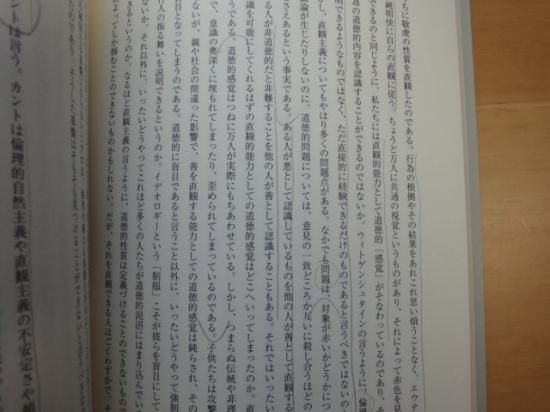 ちに敬虔の性質を直観したのである。行為の根拠やその結果をあれこれ思い煩うことなく、エウテ
純明快に自らの直観に従う。ちょうど万人に共通の視覚というものがあり、それによって赤色を
できるのと同じように、私たちには直観的能力として道徳的「感覚」がそなわっているのであり、そ
為の道徳的内容を認識することができるのではないか。ウィトゲンシュタインの言うように、倫理
できるようなものではなく、ただ直接的に経験できるだけのものであると言うべきではないの
し、直観主義についてもやはり多くの問題点がある。なかでも問題は、対象が赤いかどうかにつ
論が生じたりしないのに、道徳的問題については、意見の一致どころか互いに殺し合うほどの
さえあるという事実である。ある人が悪として認識しているものを他の人が善として直観する
る人が非道徳的だと非難することを他の人が善として認識することもある。
識を可能にしてくれるはずの直観的能力としての道徳的感覚はどこへいってしまったのか。直
うである。道徳的感覚はつねに万人が実際にもちあわせている。しかし、つまらぬ伝統や非理
て、意識の奥深くに埋もれてしまったり、歪められてしまっているのである。子供たちは攻撃
ないが、親や社会の間違った影響で、善を直観する能力としての道徳的感覚は鈍らされ、その
目となってしまうのである。道徳的に盲目であると言うこと以外に、いったいどうやって強制
人の振る舞いを説明できるというのか。イデオロギーという「制服」こそが彼らを盲目にして
か。それ以外に、いったいどうやってこれほど多くの人たちが道徳的泥沼にはまり込んでい
きるというのか。なるほど直観主義の言うように、道徳的性質は定義づけることのできないもの
よってしか掴むことのできないものかもしれない。だが、それを直観できる人はどくわずかで、そ
ントは言う。カントは倫理的自然主義や直観主義の不安定さや